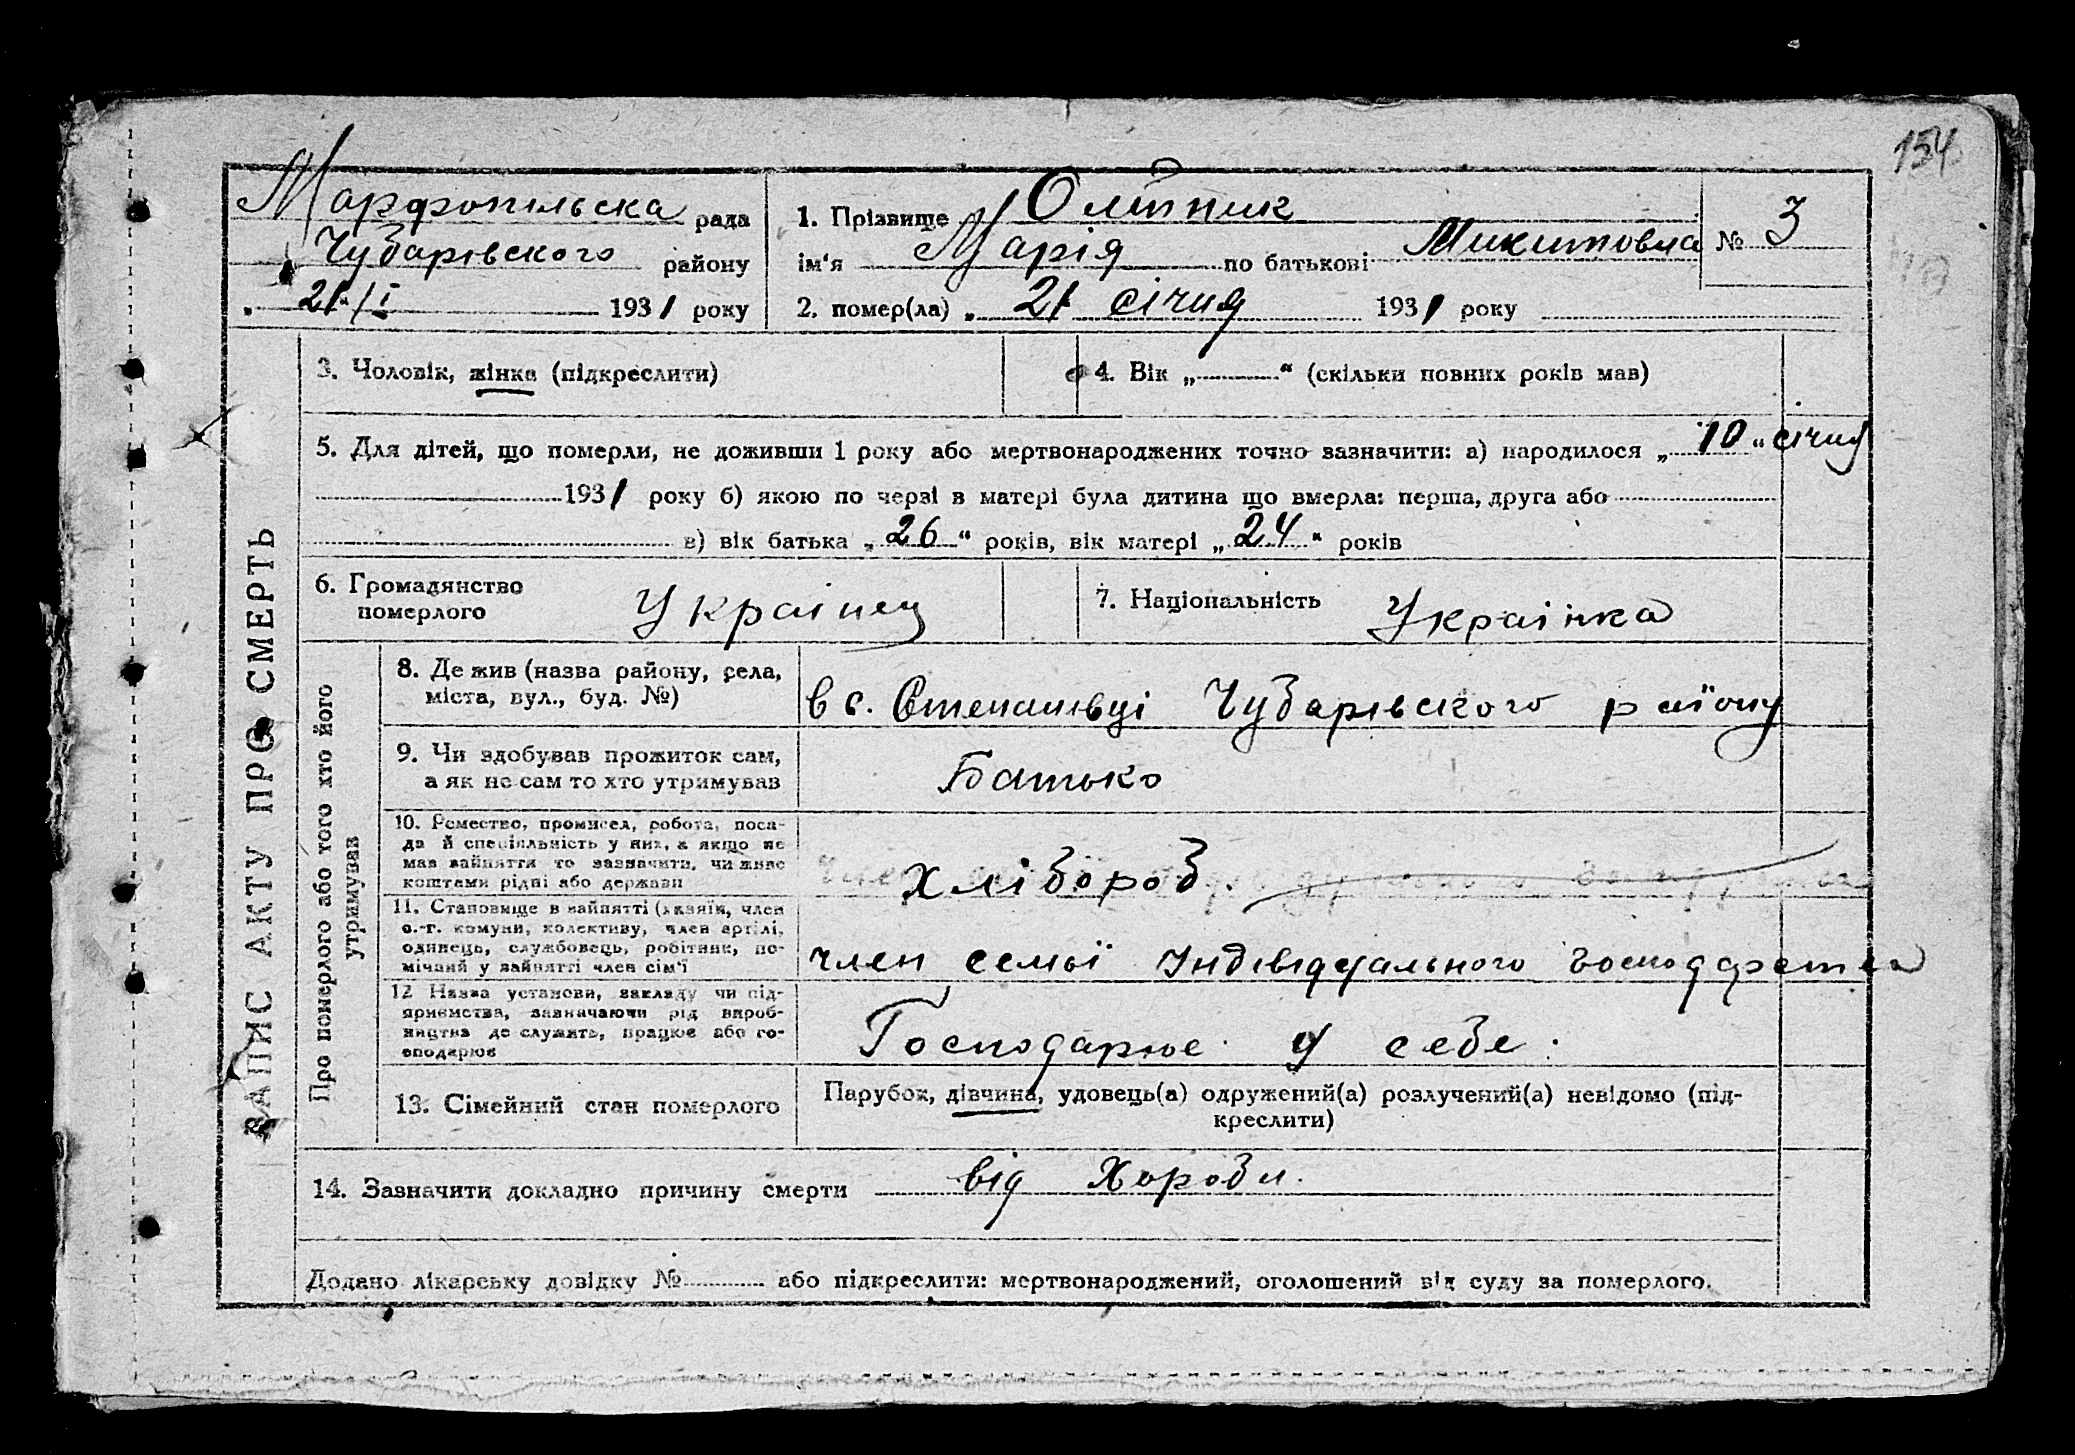 154
Марфопільска рада
Чубарівского району
„ 21/I 1931 року
1. Прізвище Олійник
ім'я Марія по батькові Микитовна
2. помер(ла) „ 21 січня 1931 року
№ 3
ЗАПИС АКТУ ПРО СМЕРТЬ
3. Чоловік, жінка (підкреслити)
4. Вік „ “ (скільки повних років мав)
5. Для дітей, що померли, не доживши 1 року або мертвонароджених точно зазначити: а) народилося „ 10 “ січня
1931 року б) якою по черзі в матері була дитина що вмерла: перша, друга або
в) вік батька „ 26 “ років, вік матері „ 24 “ років
6. Громадянство
померлого
Украінец
7. Національність Украінка
Про померлого або того хто його
утримував
8. Де жив (назва району, села,
міста, вул., буд. №)
в с. Степанівці Чубарівского району
9. Чи здобував прожиток сам,
а як не сам то хто утримував
Батько
10. Ремество, промисел, робота, поса-
да й спеціяльність у них, а якщо не
мав зайняття то зазначити, чи живе
коштами рідні або держави
Хлібороб.
11. Становище в зайнятті (хазяїн, член
с.-г. комуни, колективу, член артілі,
одинець, службовець, робітник, по-
мічний у зайнятті член сім'ї
член семьї Індівідуального господарства
12 Назва установи, закладу чи під-
приємства, зазначаючи рід вироб-
ництва де служить, працює або го-
сподарює
Господарює у себе.
13. Сімейний стан померлого
Парубок, дівчина, удовець(а) одружений(а) розлучений(а) невідомо (під-
креслити)
14. Зазначити докладно причину смерти від Хороби.
Додано лікарську довідку № або підкреслити: мертвонароджений, оголошений від суду за померлого.